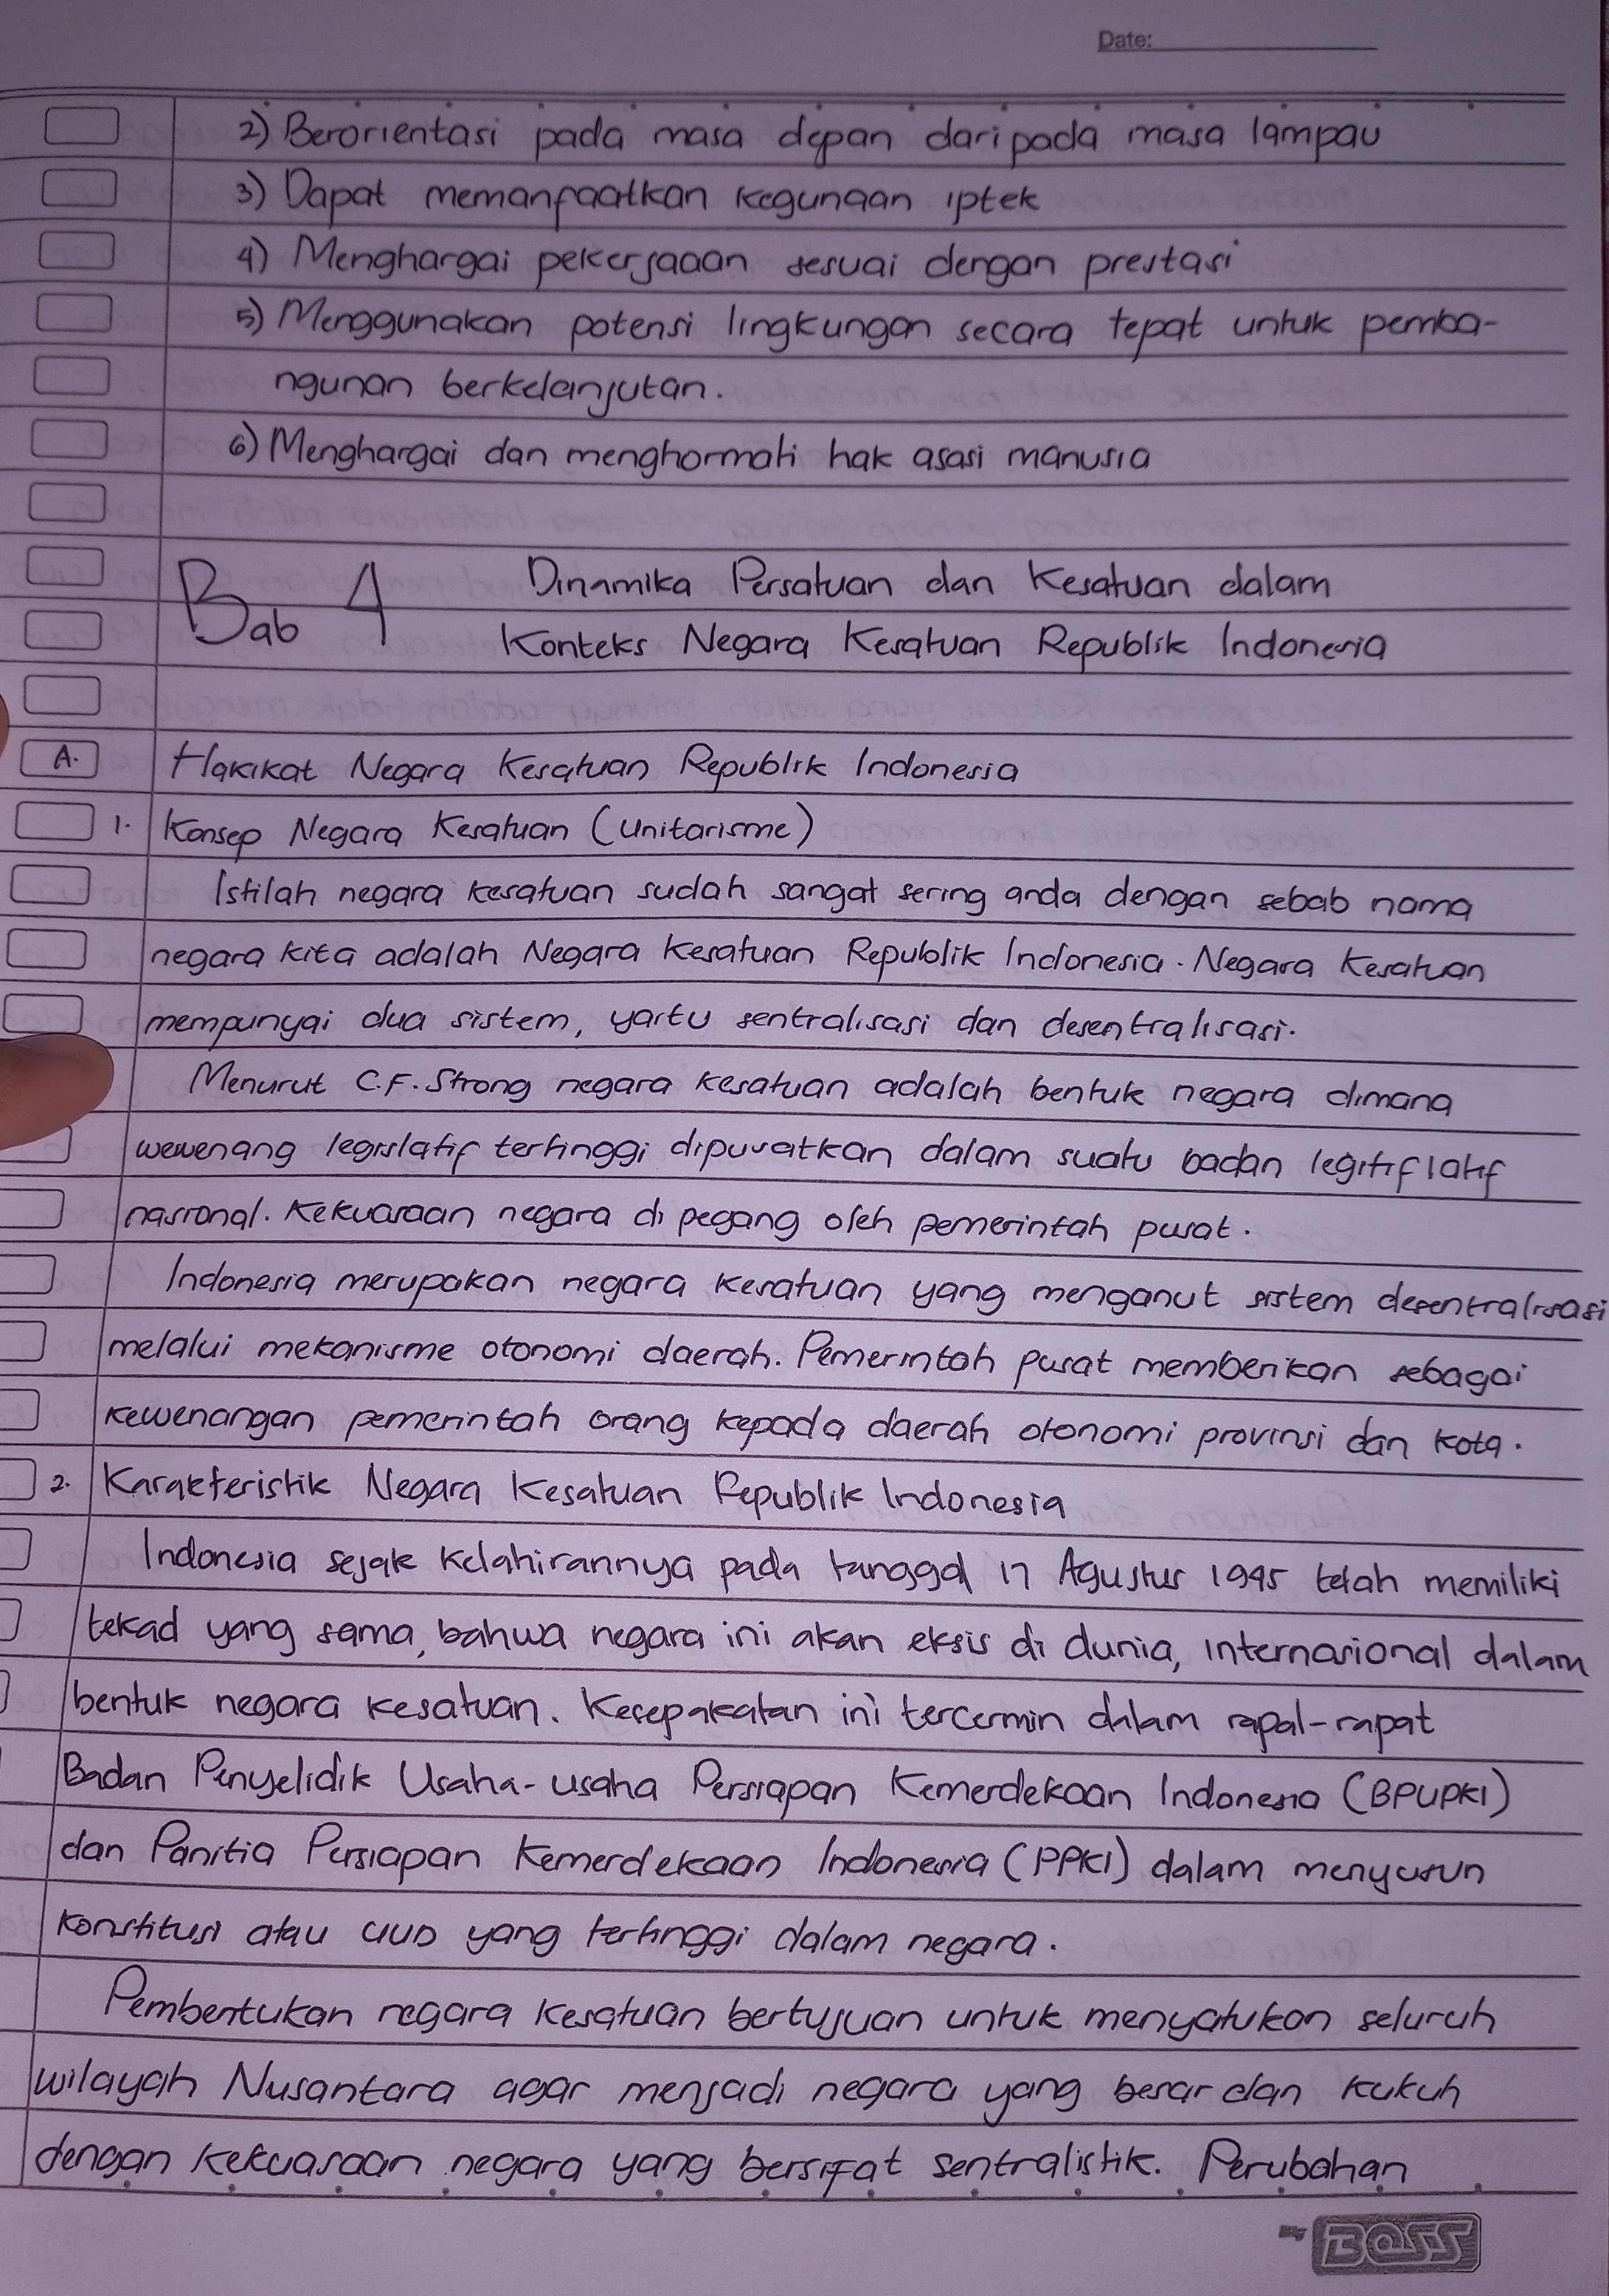 Date:
2) Berorientasi pada masa depan daripada masa lampau
3) Dapat memanfaatkan kegunaan iptek
4) Menghargai pekerjaaan sesuai dengan prestasi
5) Menggunakan potensi lingkungan secara tepat untuk pemba-
ngunan berkelanjutan.
6) Menghargai dan menghormati hak asasi manusia
Bab 4 Dinamika Persatuan dan Kesatuan dalam
Konteks Negara Kesatuan Republik Indonesia
A. Hakikat Negara Kesatuan Republik Indonesia
1. Konsep Negara Kesatuan (Unitarisme)
Istilah negara kesatuan sudah sangat sering anda dengan sebab nama
negara kita adalah Negara Kesatuan Republik Indonesia. Negara Kesatuan
mempunyai dua sistem, yaitu sentralisasi dan desentralisasi.
Menurut C.F. Strong negara kesatuan adalah bentuk negara dimana
wewenang legislatif tertinggi dipusatkan dalam suatu badan
nasional. Kekuasaan negara di pegang oleh pemerintah pusat.
Indonesia merupakan negara kesatuan yang menganut sistem desentralisasi
melalui mekanisme otonomi daerah. Pemerintah pusat memberikan sebagai
kewenangan pemerintah orang kepada daerah otonomi provinsi dan kota.
2. Karakteristik Negara Kesatuan Republik Indonesia
Indonesia sejak kelahirannya pada tanggal 17 Agustus 1945 telah memiliki
tekad yang sama, bahwa negara ini akan eksis di dunia, internasional dalam
bentuk negara kesatuan. Kesepakatan ini tercermin dalam rapat-rapat
Badan Penyelidik Usaha-usaha Persiapan Kemerdekaan Indonesia (BPUPKI)
dan Panitia Persiapan Kemerdekaan Indonesia (PPKI) dalam menyusun
konstitusi atau UUD yang tertinggi dalam negara.
Pembentukan negara kesatuan bertujuan untuk menyatukan seluruh
wilayah Nusantara agar menjadi negara yang besar dan kukuh
dengan kekuasaan negara yang bersifat sentralistik. Perubahan
Big BOSS